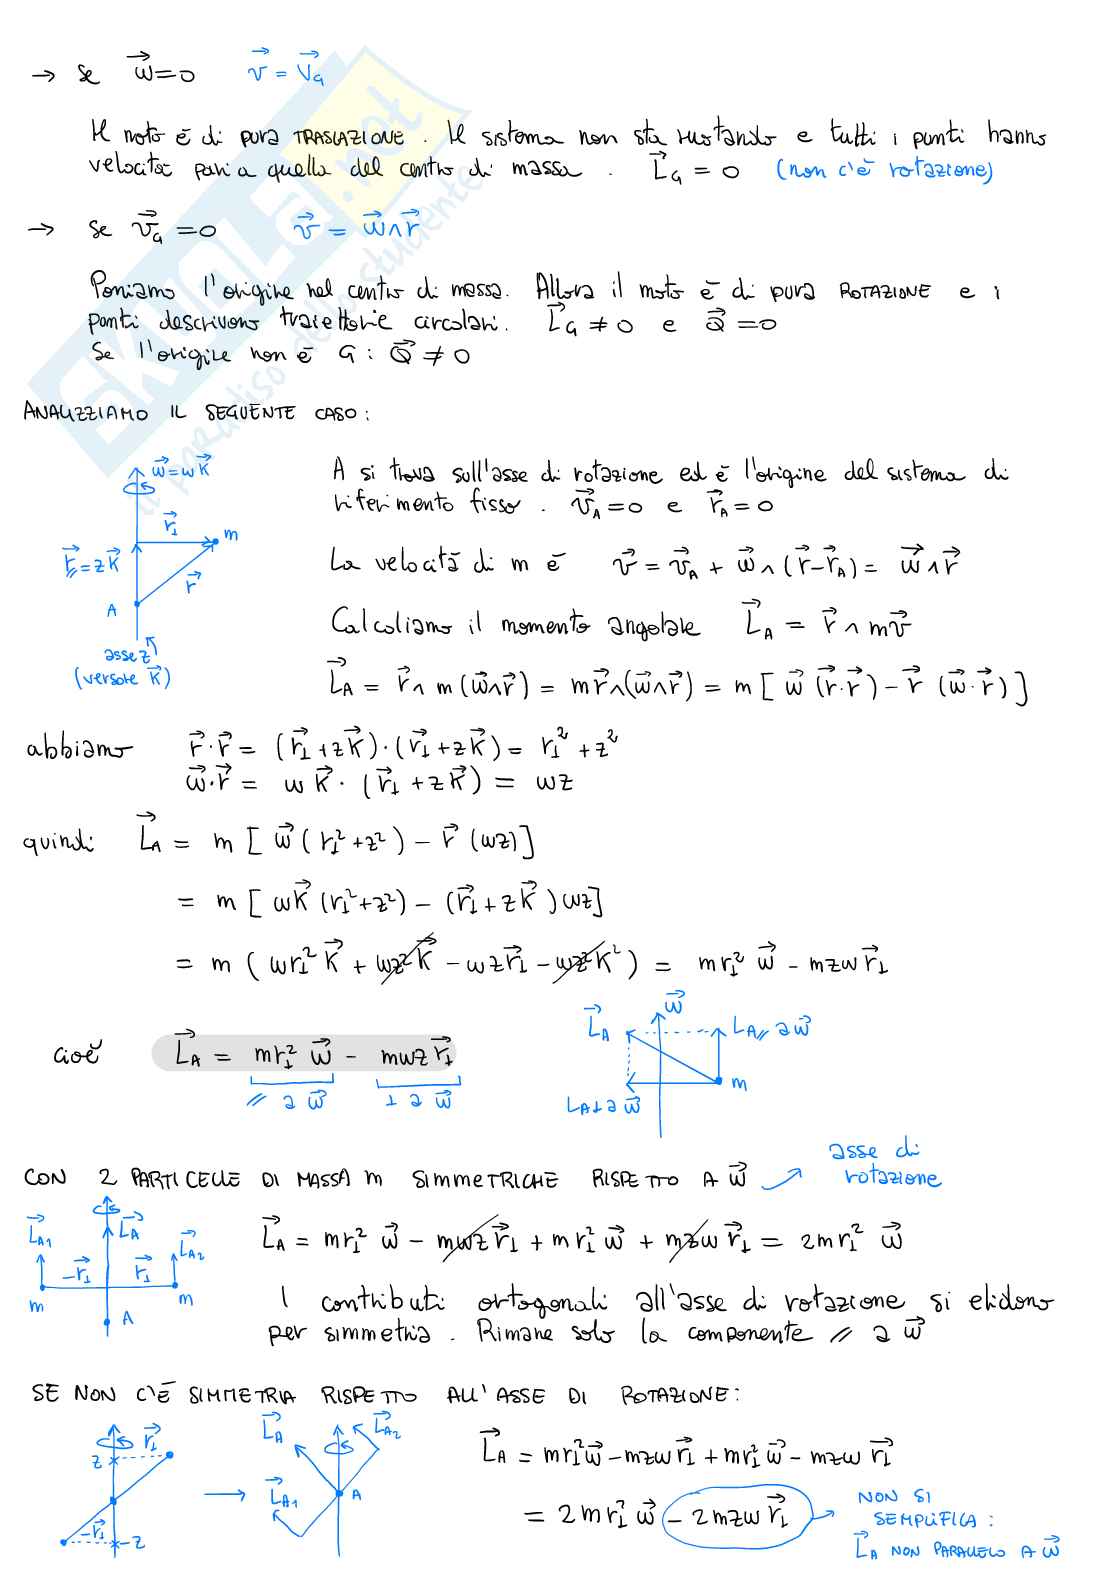 → se ω⃗=0 v⃗ = V⃗G
Il moto è di pura TRASLAZIONE. Il sistema non sta ruotando e tutti i punti hanno
velocità pari a quella del centro di massa. L⃗G = 0 (non c'è rotazione)
→ se v⃗G = 0 v⃗ = ω⃗∧r⃗
Poniamo l'origine nel centro di massa. Allora il moto è di pura ROTAZIONE e i
punti descrivono traiettorie circolari. L⃗G ≠ 0 e Q⃗ = 0
Se l'origine non è G : Q⃗ ≠ 0
ANALIZZIAMO IL SEGUENTE CASO:
ω⃗=ωK⃗
r⃗⊥
m
r⃗∥=zK⃗
r⃗
A
asse z
(versore K⃗)
A si trova sull'asse di rotazione ed è l'origine del sistema di
riferimento fisso. v⃗A=0 e r⃗A=0
La velocità di m è v⃗ = v⃗A + ω⃗∧(r⃗-r⃗A) = ω⃗∧r⃗
Calcoliamo il momento angolare L⃗A = r⃗∧mv⃗
L⃗A = r⃗∧m(ω⃗∧r⃗) = mr⃗∧(ω⃗∧r⃗) = m[ω⃗(r⃗·r⃗) - r⃗(ω⃗·r⃗)]
abbiamo r⃗·r⃗ = (r⃗⊥+zK⃗)·(r⃗⊥+zK⃗) = r⊥²+z²
ω⃗·r⃗ = ωK⃗·(r⃗⊥+zK⃗) = ωz
quindi L⃗A = m[ω⃗(r⊥²+z²) - r⃗(ωz)]
= m[ωK⃗(r⊥²+z²) - (r⃗⊥+zK⃗)ωz]
= m(ωr⊥²K⃗ + ωz²K⃗ - ωzr⃗⊥ - ωz²K²) = mr⊥²ω⃗ - mzωr⃗⊥
cioè L⃗A = mr⊥²ω⃗ - mωzr⃗⊥
∥ a ω⃗ ⊥ a ω⃗
L⃗A
ω⃗
LA∥ a ω⃗
m
LA⊥ a ω⃗
CON 2 PARTICELLE DI MASSA m SIMMETRICHE RISPETTO A ω⃗ asse di
rotazione
L⃗A1
L⃗A
L⃗A2
-r⃗⊥
r⃗⊥
m
m
A
L⃗A = mr⊥²ω⃗ - mωzr⃗⊥ + mr⊥²ω⃗ + mzωr⃗⊥ = 2mr⊥²ω⃗
I contributi ortogonali all'asse di rotazione si elidono
per simmetria. Rimane solo la componente ∥ a ω⃗
SE NON C'È SIMMETRIA RISPETTO ALL'ASSE DI ROTAZIONE:
r⃗⊥
z
-r⃗⊥
-z
L⃗A
L⃗A2
L⃗A1
A
L⃗A = mr⊥²ω⃗ - mzωr⃗⊥ + mr⊥²ω⃗ - mzωr⃗⊥
= 2mr⊥²ω⃗ - 2mzωr⃗⊥
NON SI
SEMPLIFICA:
L⃗A NON PARALLELO A ω⃗
SKUOLA.net
il paradiso dello studente